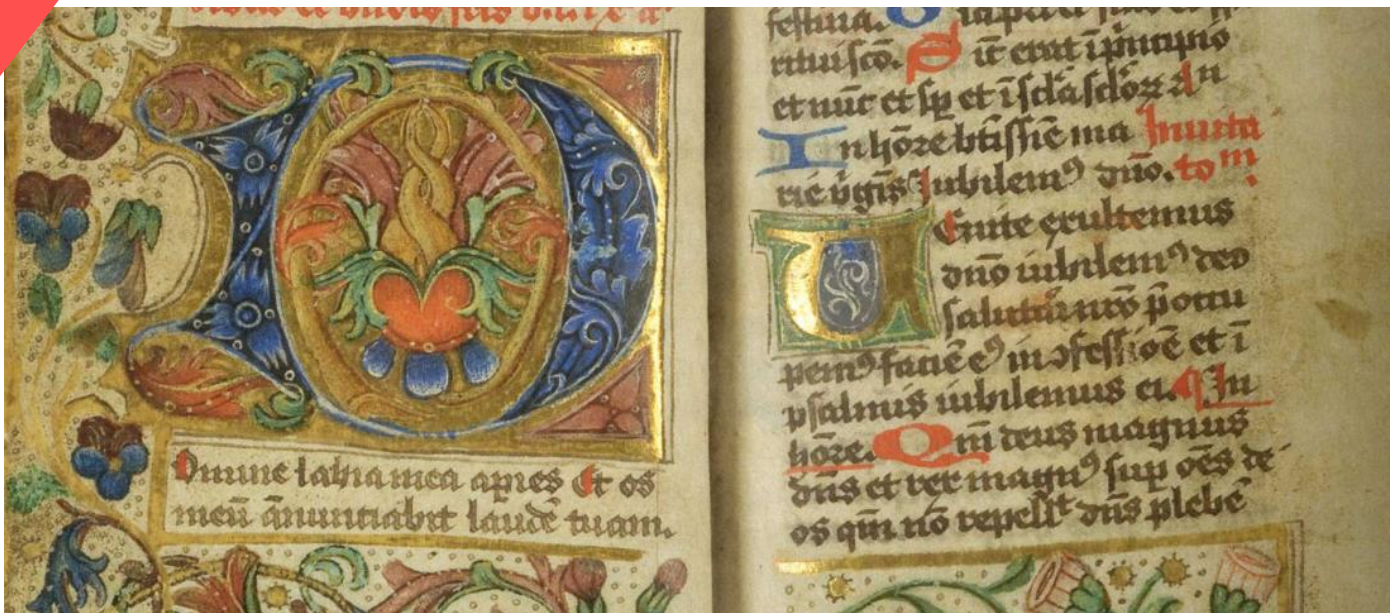 Domine labia mea apries Et os
meū ānunciabit laudē tuam.
festina.
ritui sc̄o. Sic̄ erat ī p̄ncipio
et nūc et sp̄ et ī sc̄la sc̄loꝝ an
In hōre btīssīe ma Inuita
rie v̄gīs Iubilemꝰ dn̄o. to m̄.
Uenite exultemus
dn̄o iubilemꝰ deo
salutari nr̄o p̄occu
pemꝰ faciē eꝰ in ꝯfessiōē et ī
psalmis iubilemus ei. In
hōre. Qm̄ deus magnus
dn̄s et rex magnꝰ sup oēs de
os qm̄ nō repellꝫ dn̄s plebē